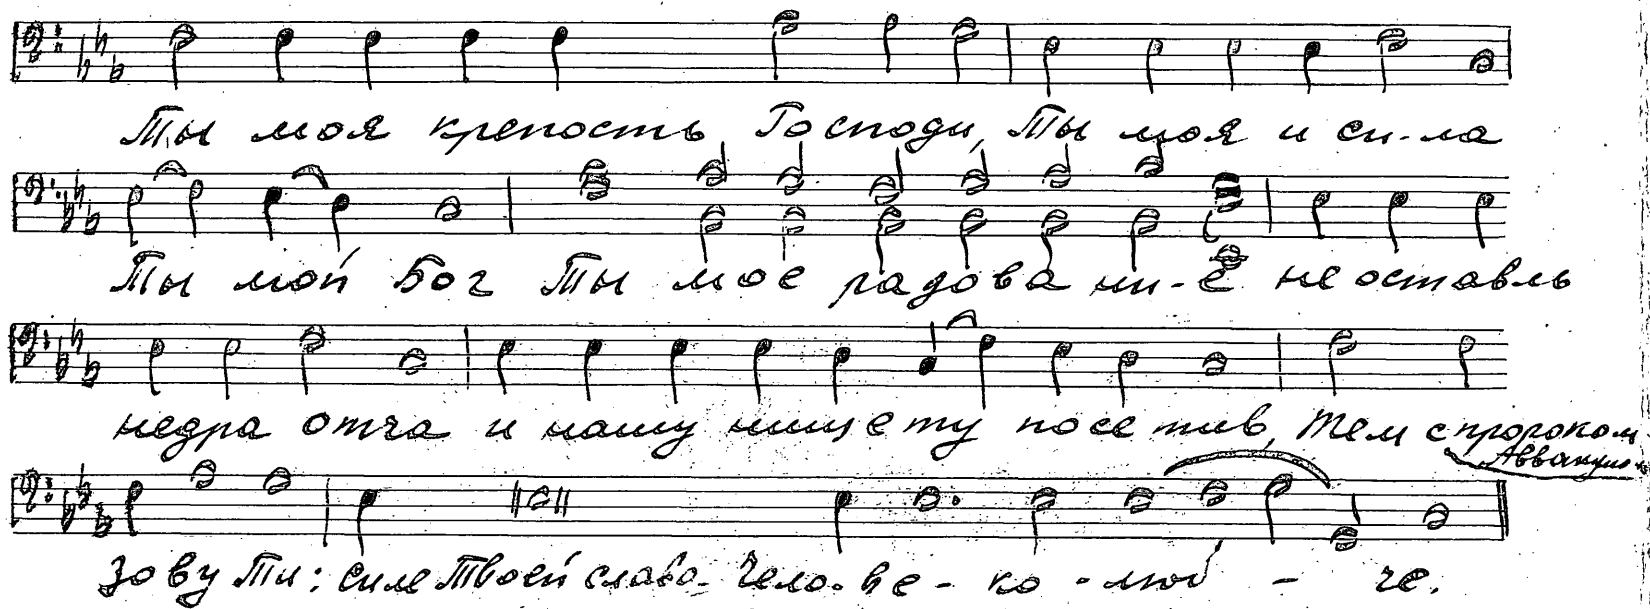 Ты моя крепость, Господи, Ты моя и си-ла
Ты мой Бог Ты мое радова ни-е не оставль
недра отча и нашу нищету посетив, Тем с пророком
Аввакумом
зову Ти: силе Твоей слава. Чело-ве-ко-люб-че.